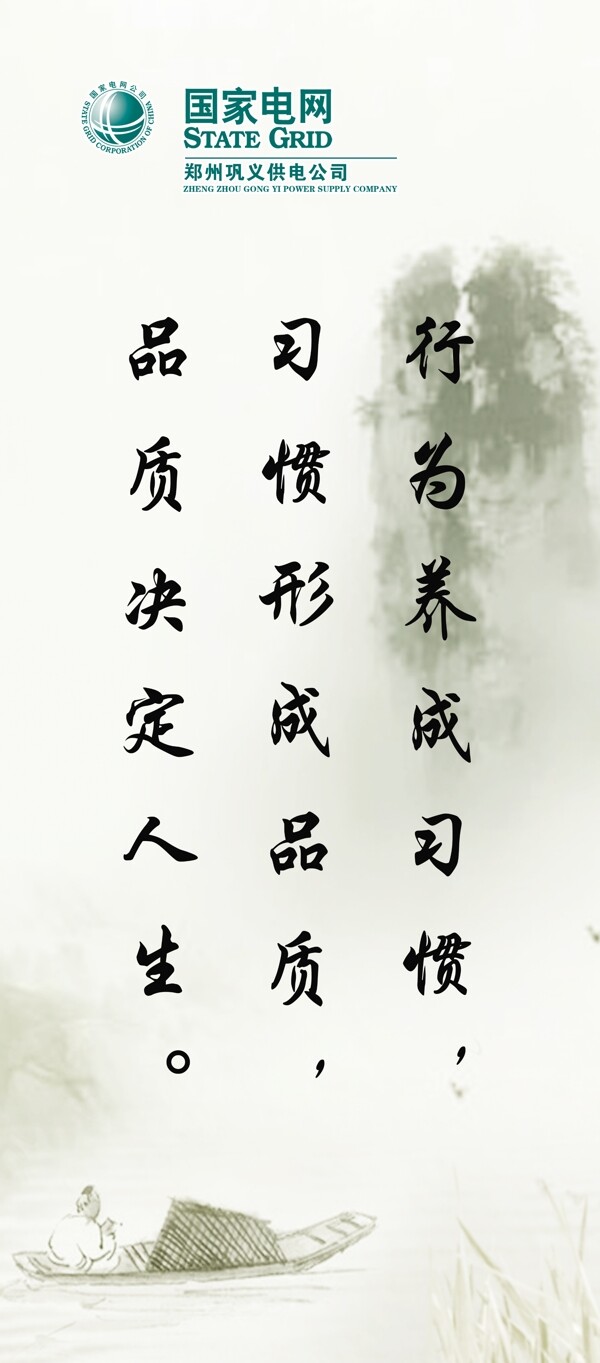 国家电网公司
STATE GRID CORPORATION OF CHINA
国家电网
STATE GRID
郑州巩义供电公司
ZHENG ZHOU GONG YI POWER SUPPLY COMPANY
行为养成习惯，
习惯形成品质，
品质决定人生。